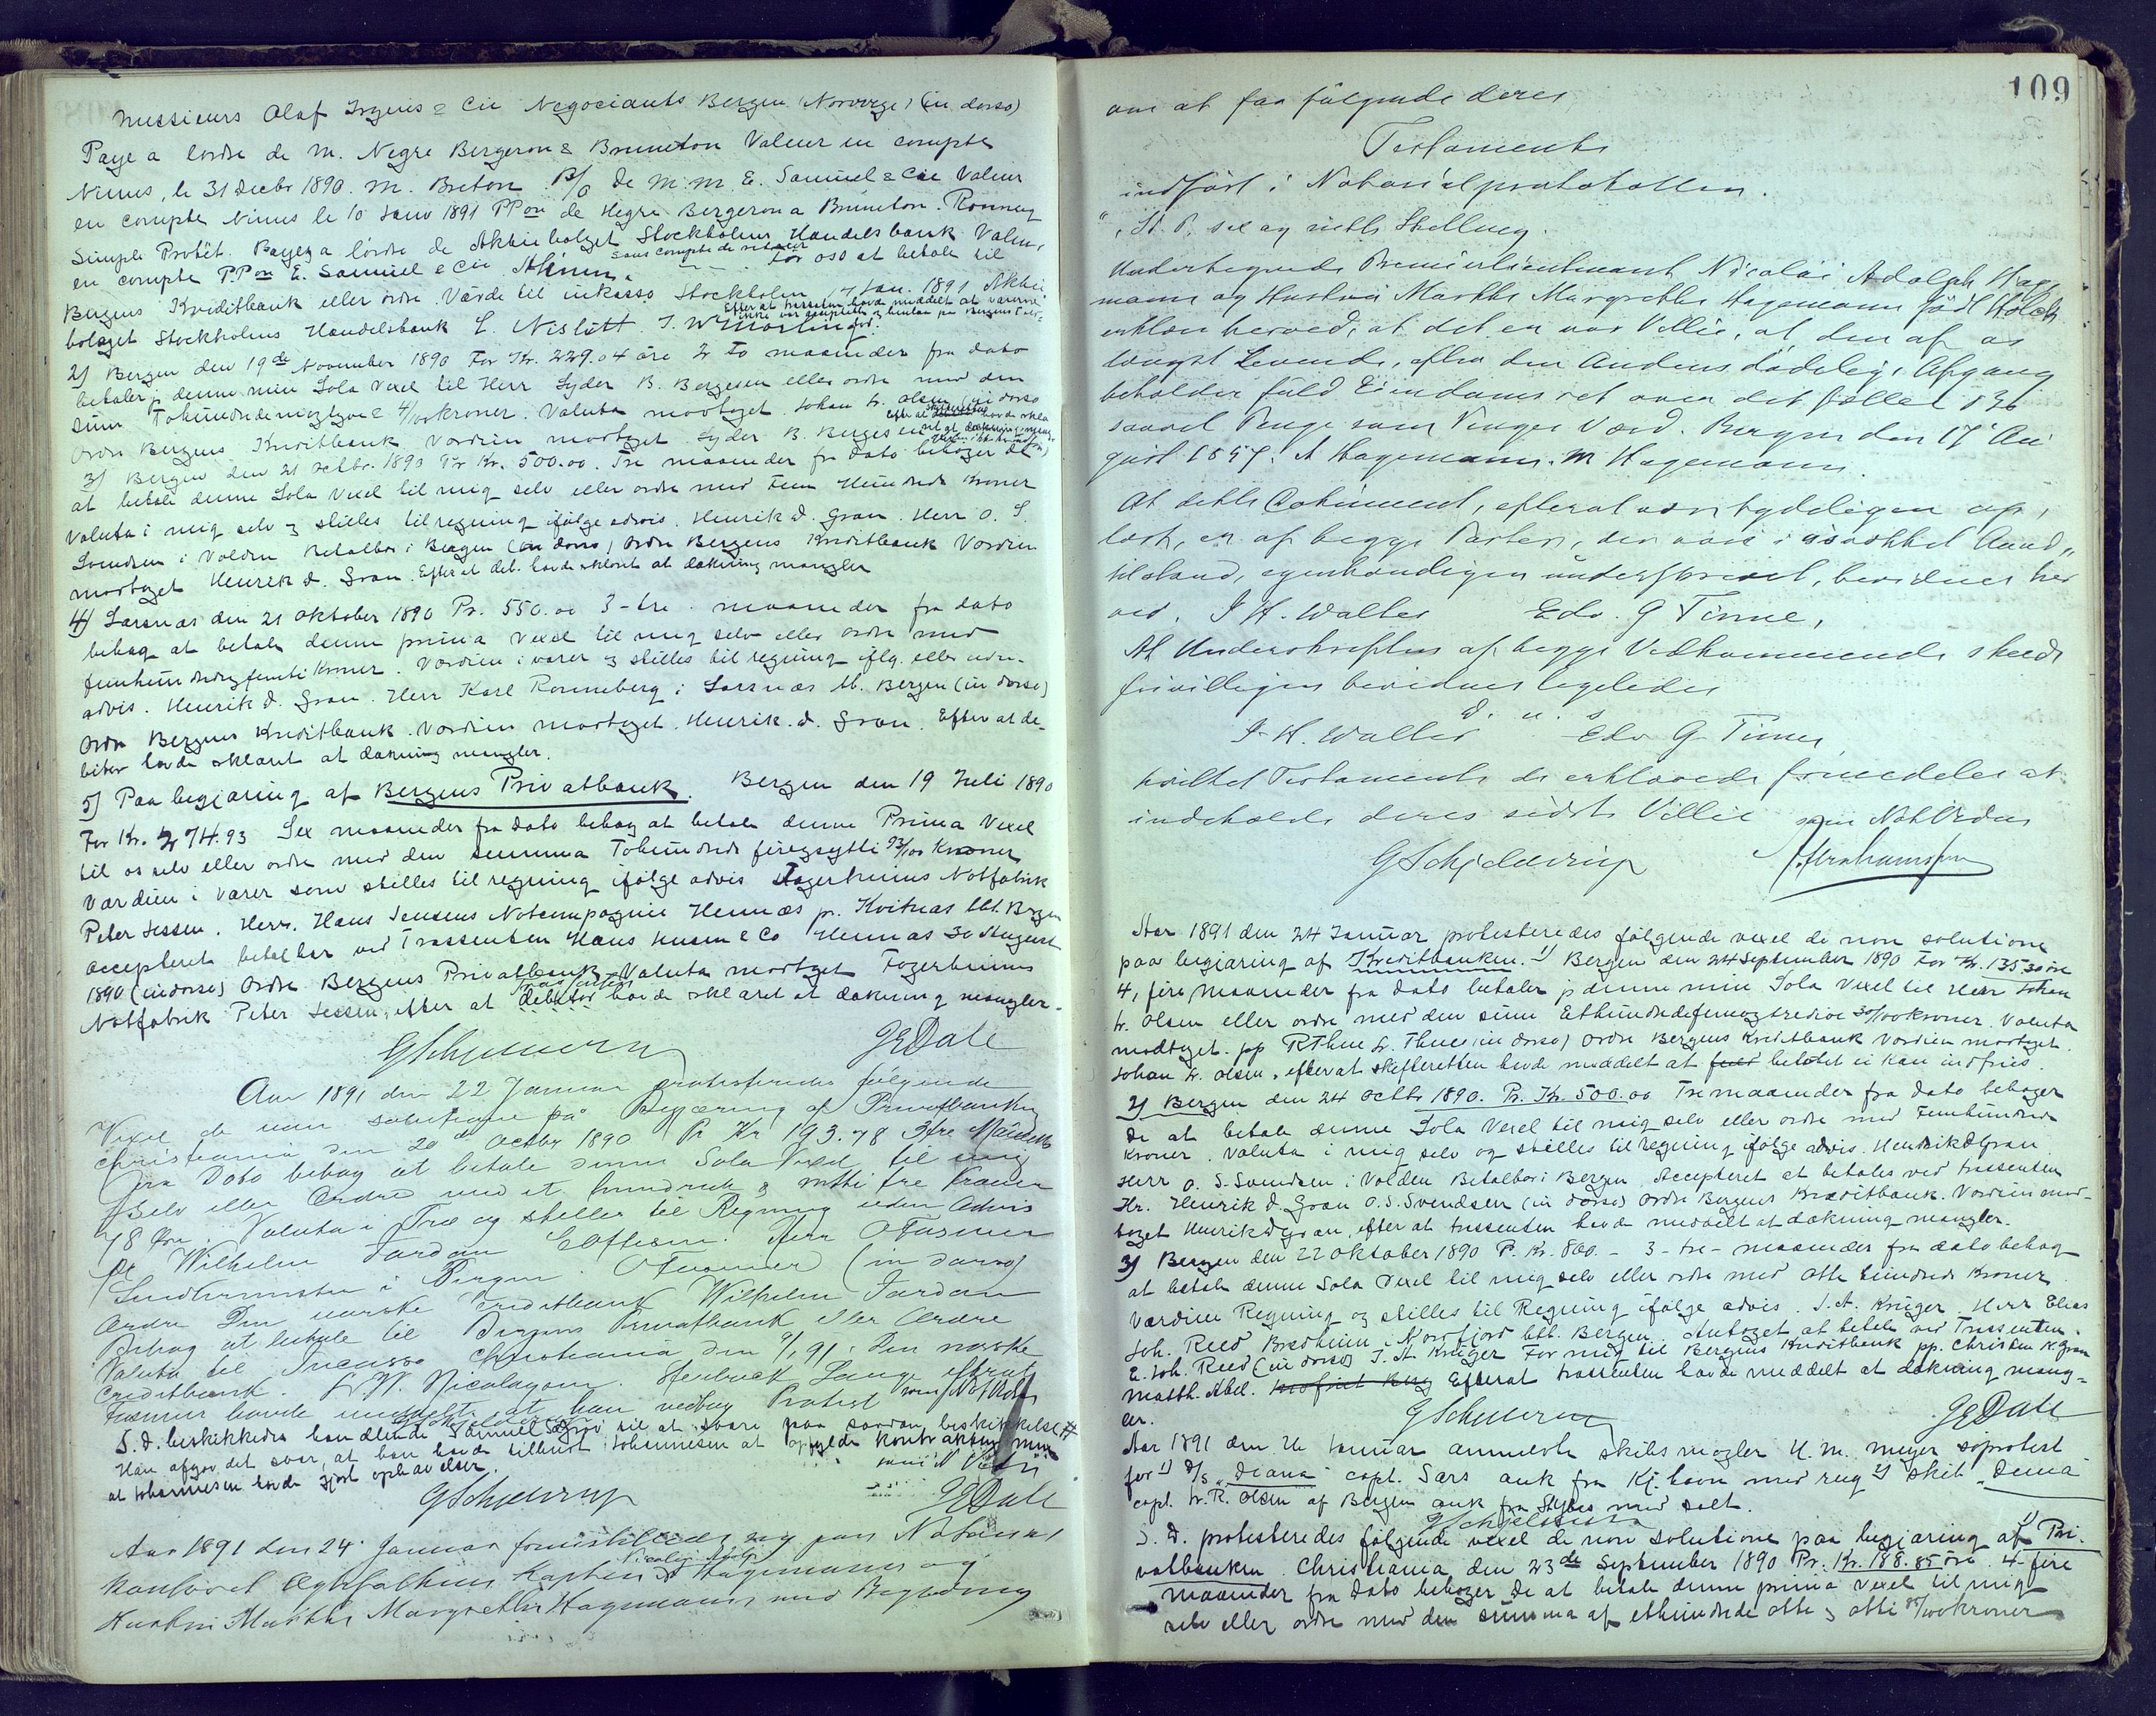 Messieurs Olaf Irgens & Cie Negociants Bergen (Norvege) (in dorso)
Paye a lordre de M. Negre Bergeron & Bruneton Valeur en compte
Nimes, le 31 Decbr 1890. M. Breton P/o de M.M. E. Samuel & Cie Valeur
en compte Nimes le 10 Janv 1891 PPon de Negre Bergeron a Bruneton.
Simple Protêt. Payez a lordre de Aktiebolaget Stockholms Handelsbank Valeur
sans compte de retour
en compte P.Pon E. Samuel & Cie for oss at betale til
Bergens Kreditbank eller ordre. Værde til inkasso Stockholm 7 Jan. 1891 Aktie
bolaget Stockholms Handelsbank
2) Bergen den 19de November 1890 For Kr. 229.04 öre 2 to maaneder fra dato
betaler jeg denne min Sola Vexel til Herr Lyder B. Bergesen eller ordre med den
sum Tohundredeniogtyve 4/100 kroner. Valuta modtaget. Johan Fr. Olsen (in dorso
Ordre Bergens Kreditbank Værdien modtaget Lyder B. Bergesen
3) Bergen den 21 Octbr. 1890 Pr Kr. 500.00. Tre maaneder fra dato behager De
at betale denne Sola Vexel til mig selv eller ordre med Fem Hundrede Kroner
Valuta i mig selv og stilles til regning ifølge advis. Henrik D. Gran. Herr O. S.
Svendsen i Volden Betalbar i Bergen (in dorso) Ordre Bergens Kreditbank Værdien
modtaget Henrik D. Gran. Efter at deb. havde erklæret at dækning mangler
4) Larsnæs den 21 Oktober 1890 Pr. 550.00 3-tre. maaneder fra dato
behag at betale denne prima Vexel til mig selv eller ordre med
femhundredeogfemti Kroner. Værdien i varer og stilles til regning iflg. eller uden
advis. Henrik D. Gran. Herr Karl Ronneberg i Larsnæs bt. Bergen (in dorso)
Ordre Bergens Kreditbank. Værdien modtaget. Henrik. D. Gran. Efter at de-
bitor havde erklæret at dækning mangler.
5) Paa begjæring af Bergens Privatbank. Bergen den 19 Juli 1890
For Kr. 274.93 Sex maaneder fra dato behag at betale denne Prima Vexel
til os selv eller ordre med den summa Tohundrede fireogsytti 93/100 Kroner
Værdien i varer som stilles til regning ifølge advis Fagerheims Notfabrik
Peter Jessen. Herr. Hans Jensens Notcompagnie Hennæs p. Kvitnæs bbt. Bergen
accepteret betalbar ved Trassenten Hans Jensen & Co Hennæs 30 August
1890 (in dorso) Ordre Bergens Privatbank Valuta modtaget Fagerheims
trassenten
Notfabrik Peter Jessen, efter at debitor havde erklæret at dækning mangler.
GSchjelderup JEDale
Aar 1891 den 22 Januar protesteredes følgende
Vexel de non solutione på Begjæring af Privatbanken
Christiania den 20de Octbr 1890 Pr Kr 193.78 3 tre Maaneder
fra Dato behag at betale denne Sola Vexel til mig
selv eller Ordre med et hundrede & nitti tre Kroner
78 Øre. Valuta i Træ og stilles til Regning uden Advis
Wilhelm Jordan Herr O Fasmer
i Bergen. O Fasmer (in dorso)
Ordre Den norske Creditbank Wilhelm Jordan
Behag at betale til Bergens Privatbank eller Ordre
Valuta til Incasso Christiania den 9/1 91. Den norske
Creditbank. N. Nicolaysen. Stenbuck Lange efterat
Fasmer havde meddelt at han vedtog Protest som Not Vidn
S. d. beskikkedes handlende Samuel til at svare paa saadan beskikkelse #
Han afgav det svar, at han havde tilbudt Johannesen at opfylde kontrakten men
at Johannesen havde gjort ophævelser.
GSchjelderup JEDale
Aar 1891 den 24 Januar fremstillede sig paa Notarial
Nicolai Adolp
kontoret Ægtefolkene Kaptein Hagemann og
Hustru Marthe Margrethe Hagemann med Begjæring
109
om at faa følgende deres
Testamente
indført i Notarialprotokollen.
Underteguede Premierlieutenant Nicolai Adolph Hage
mann og Hustru Marthe Margrethe Hagemann født Holck
erklære herved, at det er vor Villie, at den af os
længst Levende, efter den Andens dødelige Afgang
beholder fuld Eiendoms ret over det fælles Bo
saavel Penge som Penges Værd. Bergen den 17 Au
gust 1857. A Hagemann. M Hagemann.
At dette Dokument, efterat være tydeligen op,
læst, er af begge Parter, der vare i usvækket Aands
tilstand, egenhændigen underskrevet, bevidnes her
ved. J H. Walter Edv. G Timme,
At Underskriften af begge Vedkommende skede
frivilligen bevidnes ligeledes
D. u. s
J. H. Walter Edv G Timme,
hvilket Testamente de erklærede fremdeles at
indeholde deres sidste Villie som Not Vidne
GSchjelderup
Aar 1891 den 24 Januar protesteredes følgende vexel de non solutione
paa begjæring af Kreditbanken. 1) Bergen den 24 September 1890 For Kr. 135 30 öre
4, fire, maaneder fra dato betaler jeg denne min Sola Vexel til Herr Johan
Fr. Olsen eller ordre med den sum Ethundredefemogtredive 30/100 kroner. Valuta
modtaget. pp R Thue Fr. Thue (in dorso) Ordre Bergens Kreditbank Værdien modtaget.
Johan Fr. Olsen, efter at skifteretten havde meddelt at beløbet ei kan indfries.
2) Bergen den 24 Octbr 1890. Pr. Kr. 500.00 Tre maaneder fra dato behager
De at betale denne Sola Vexel til mig selv eller ordre med Femhundrede
Kroner. Valuta i mig selv og stilles til regning ifølge advis. Hendrik D Gran
Herr O. S. Svendsen i Volden Betalbar i Bergen, Accepteret at betales ved trassenten
Hr. Henrik D. Gran O. S. Svendsen (in dorso) Ordre Bergens Kreditbank. Værdien mod-
taget Henrik D Gran, efter at trassenten havde meddelt at dækning mangler.
3) Bergen den 22 Oktober 1890 P. Kr. 800.- 3-tre-maaneder fra dato behag
at betale denne Sola Vexel til mig selv eller ordre med Otte Hundrede Kroner
Værdien Regning og stilles til Regning ifølge advis. J. A. Krüger. Herr Elias
Joh. Reed Bredheim i Nordfjord btb. Bergen. Antaget at betale ved Trassenten.
E. Joh. Reed (in dorso) J. A Krüger For mig til Bergens Kreditbank pp. Christen K. Gran
Matth. Abel. Efterat trassenten havde meddelt at dækning mang-
ler. GSchjelderup JEDale
Aar 1891 den 26 Januar anmeldte skibsmægler H. M. Meyer søprotest
for 1) D/S "Diana" capt. Sars ank fra Kj.havn med rug 2) skib "Dema"
capt. Fr. R. Olsen af Bergen ank fra med salt.
GSchjelderup
S. D. protesteredes følgende vexel de non solutione paa begjæring af 1) Pri-
vatbanken. Christiania den 23de September 1890 Pr. Kr. 188.85 öre 4-fire
maaneder fra dato behager De at betale denne prima vexel til mig
selv eller ordre med den summa af ethundrede otte og otti 85/100 kroner